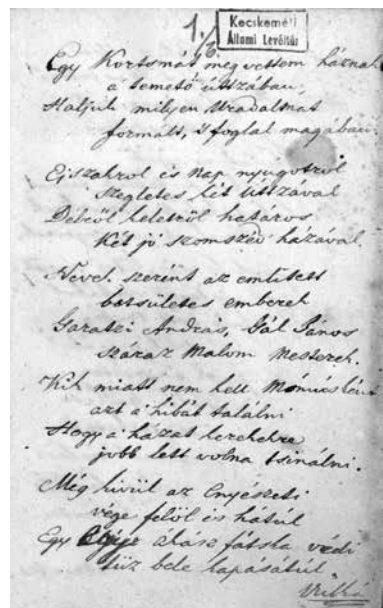 1.
Kecskeméti
Állami Levéltár
Egy Kortsmát megvettem háznak
a temető útszában,
Halljuk milyen Uradalmat
formált, 's foglal magában.
Éjszakrol és Nap nyugotrol
szegletes két útszával
Délről keletről határos
Két jó szomszéd házával.
Nevek szerént az emlitett
betsületes emberek
Garatzi András, Gál János
száraz Malom Mesterek.
Kik miatt nem kell
azt a hibát találni
Hogy a házat kerekekre
jobb lett volna tsinálni.
Még kivül az Enyészeti
vége felöl és hátúl
Egy akász fátska védi
tüz bele kapásátúl